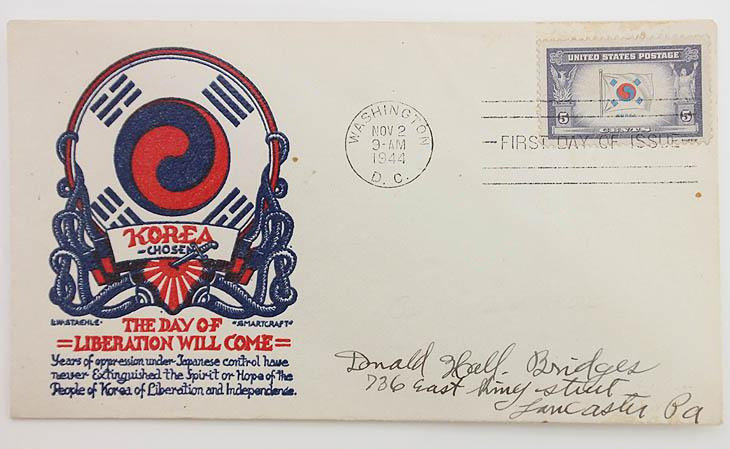 KOREA
-CHOSEN-
L.W. STAEHLE "SMARTCRAFT"
THE DAY OF
=LIBERATION WILL COME=
Years of oppression under Japanese control have
never Extinguished the Spirit or Hope of the
People of Korea of Liberation and Independence.
WASHINGTON
NOV 2
9-AM
1944
D. C.
FIRST DAY OF ISSUE
UNITED STATES POSTAGE
KOREA
5 CENTS 5
Donald Hall. Bridges
736 East King street
Lancaster Pa